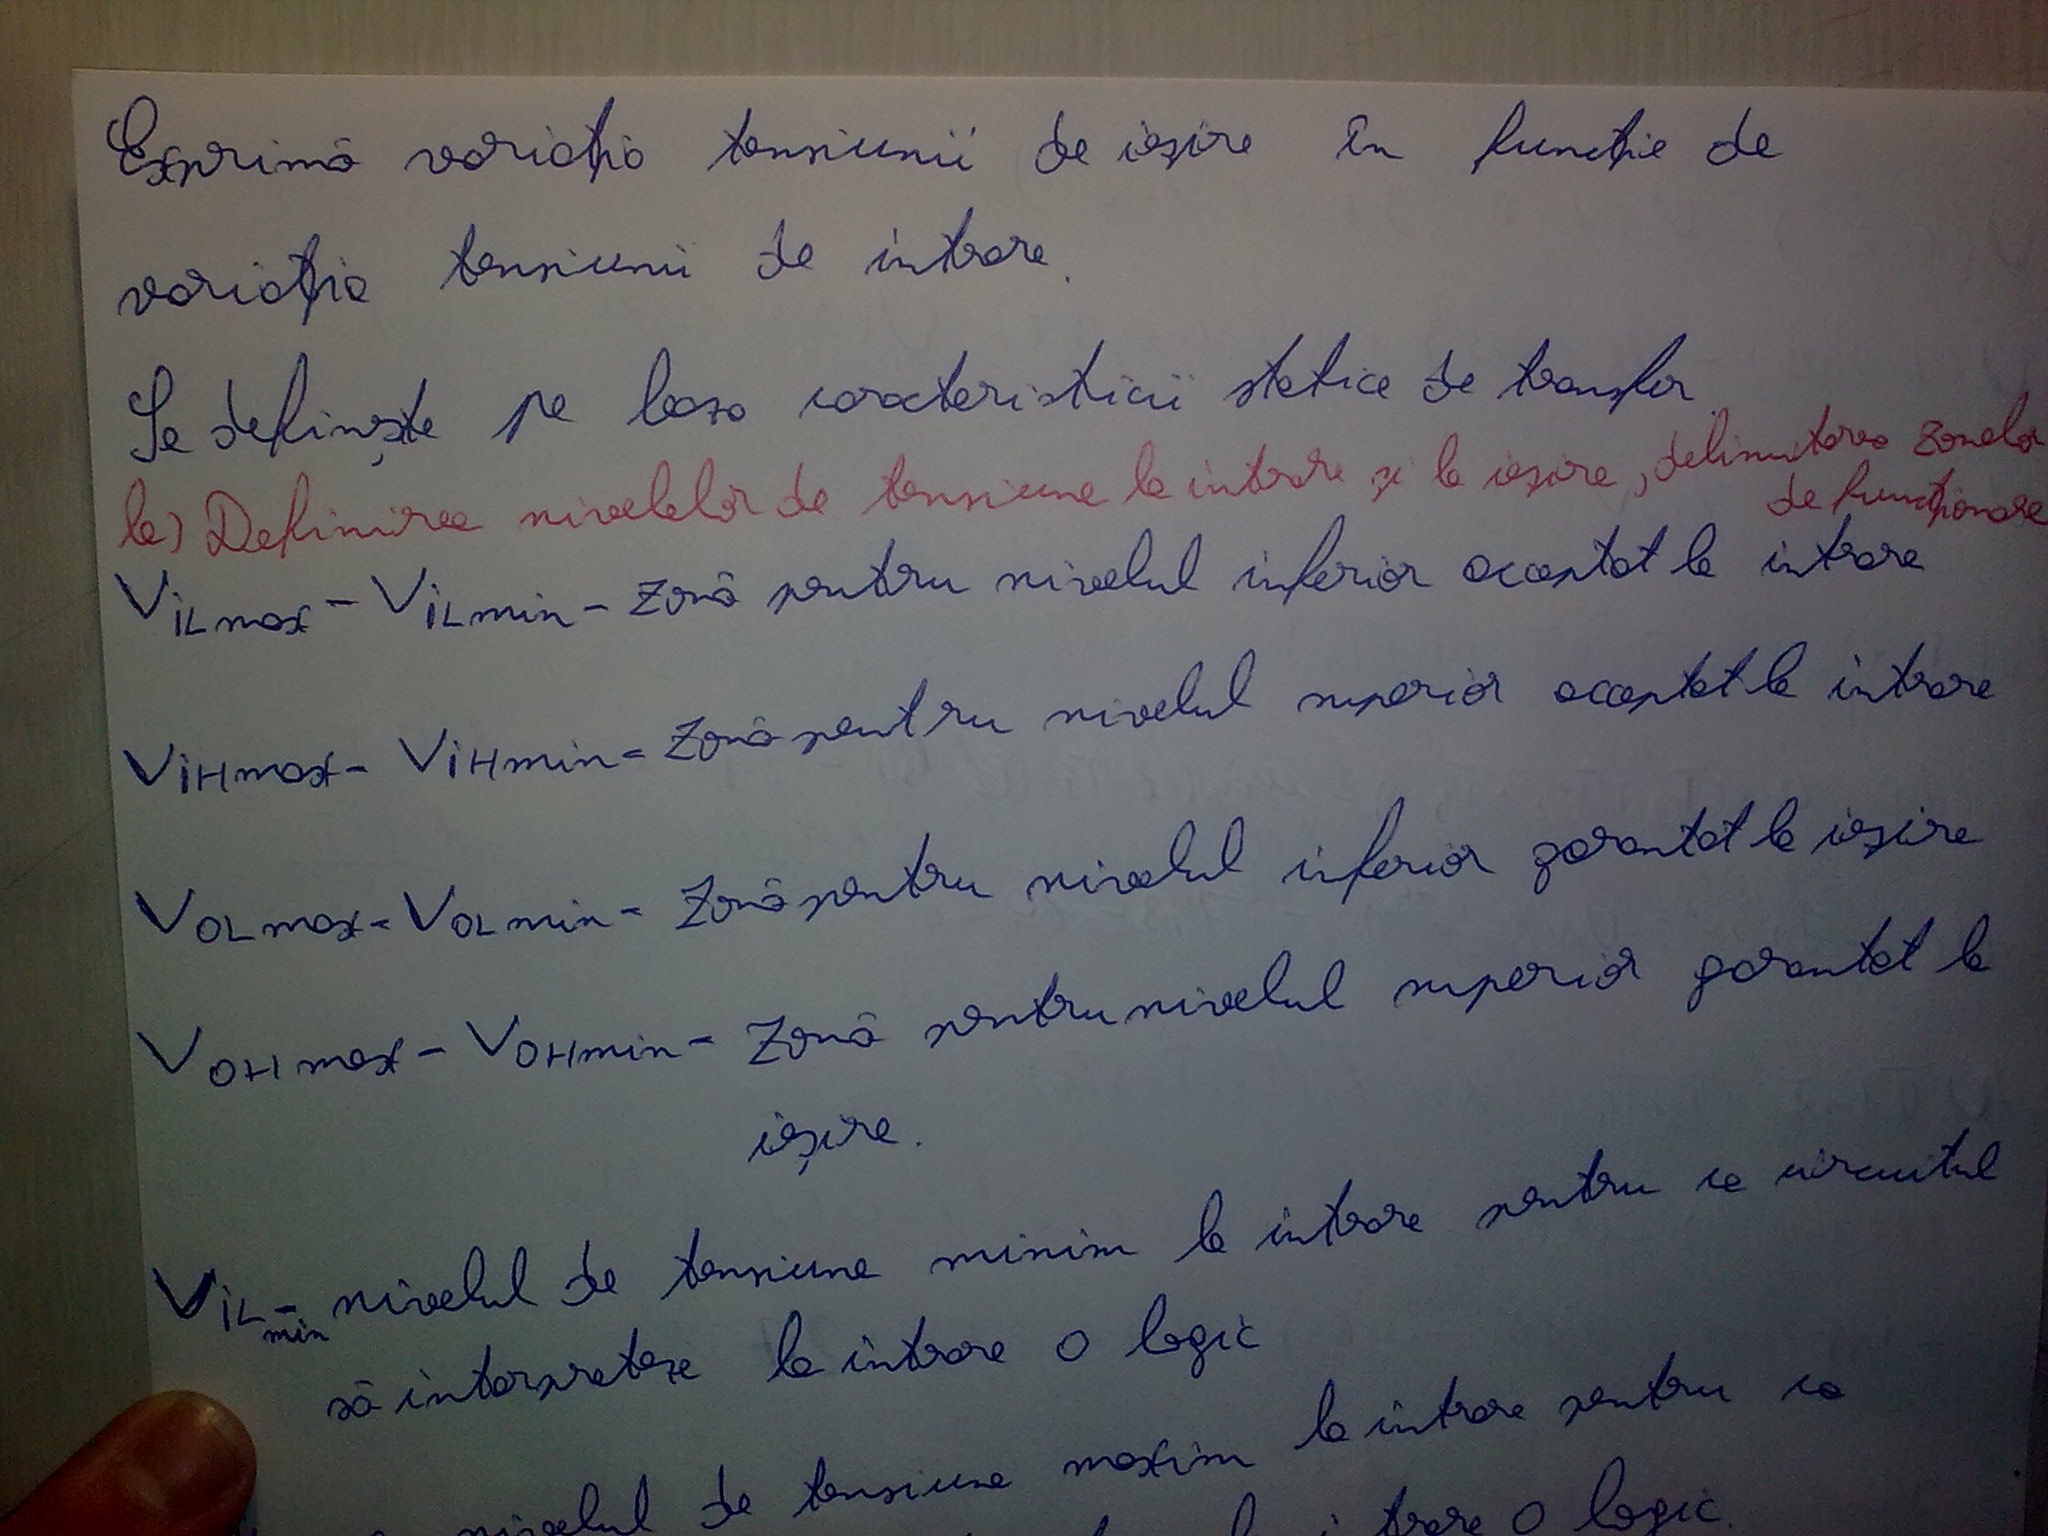 Exprimă variația tensiunii de ieșire în funcție de
variația tensiunii de intrare.
Se definește pe baza caracteristicii statice de transfer
b) Definirea nivelelor de tensiune la intrare și la ieșire, delimitarea zonelor
de funcționare
VILmax - VILmin - zonă pentru nivelul inferior acceptat la intrare
VIHmax - VIHmin = zonă pentru nivelul superior acceptat la intrare
VOLmax - VOLmin - zonă pentru nivelul inferior garantat la ieșire
VOHmax - VOHmin - zonă pentru nivelul superior garantat la
ieșire.
VILmin - nivelul de tensiune minim la intrare pentru ca circuitul
să interpreteze la intrare 0 logic
nivelul de tensiune maxim la intrare pentru ca
intrare 0 logic.